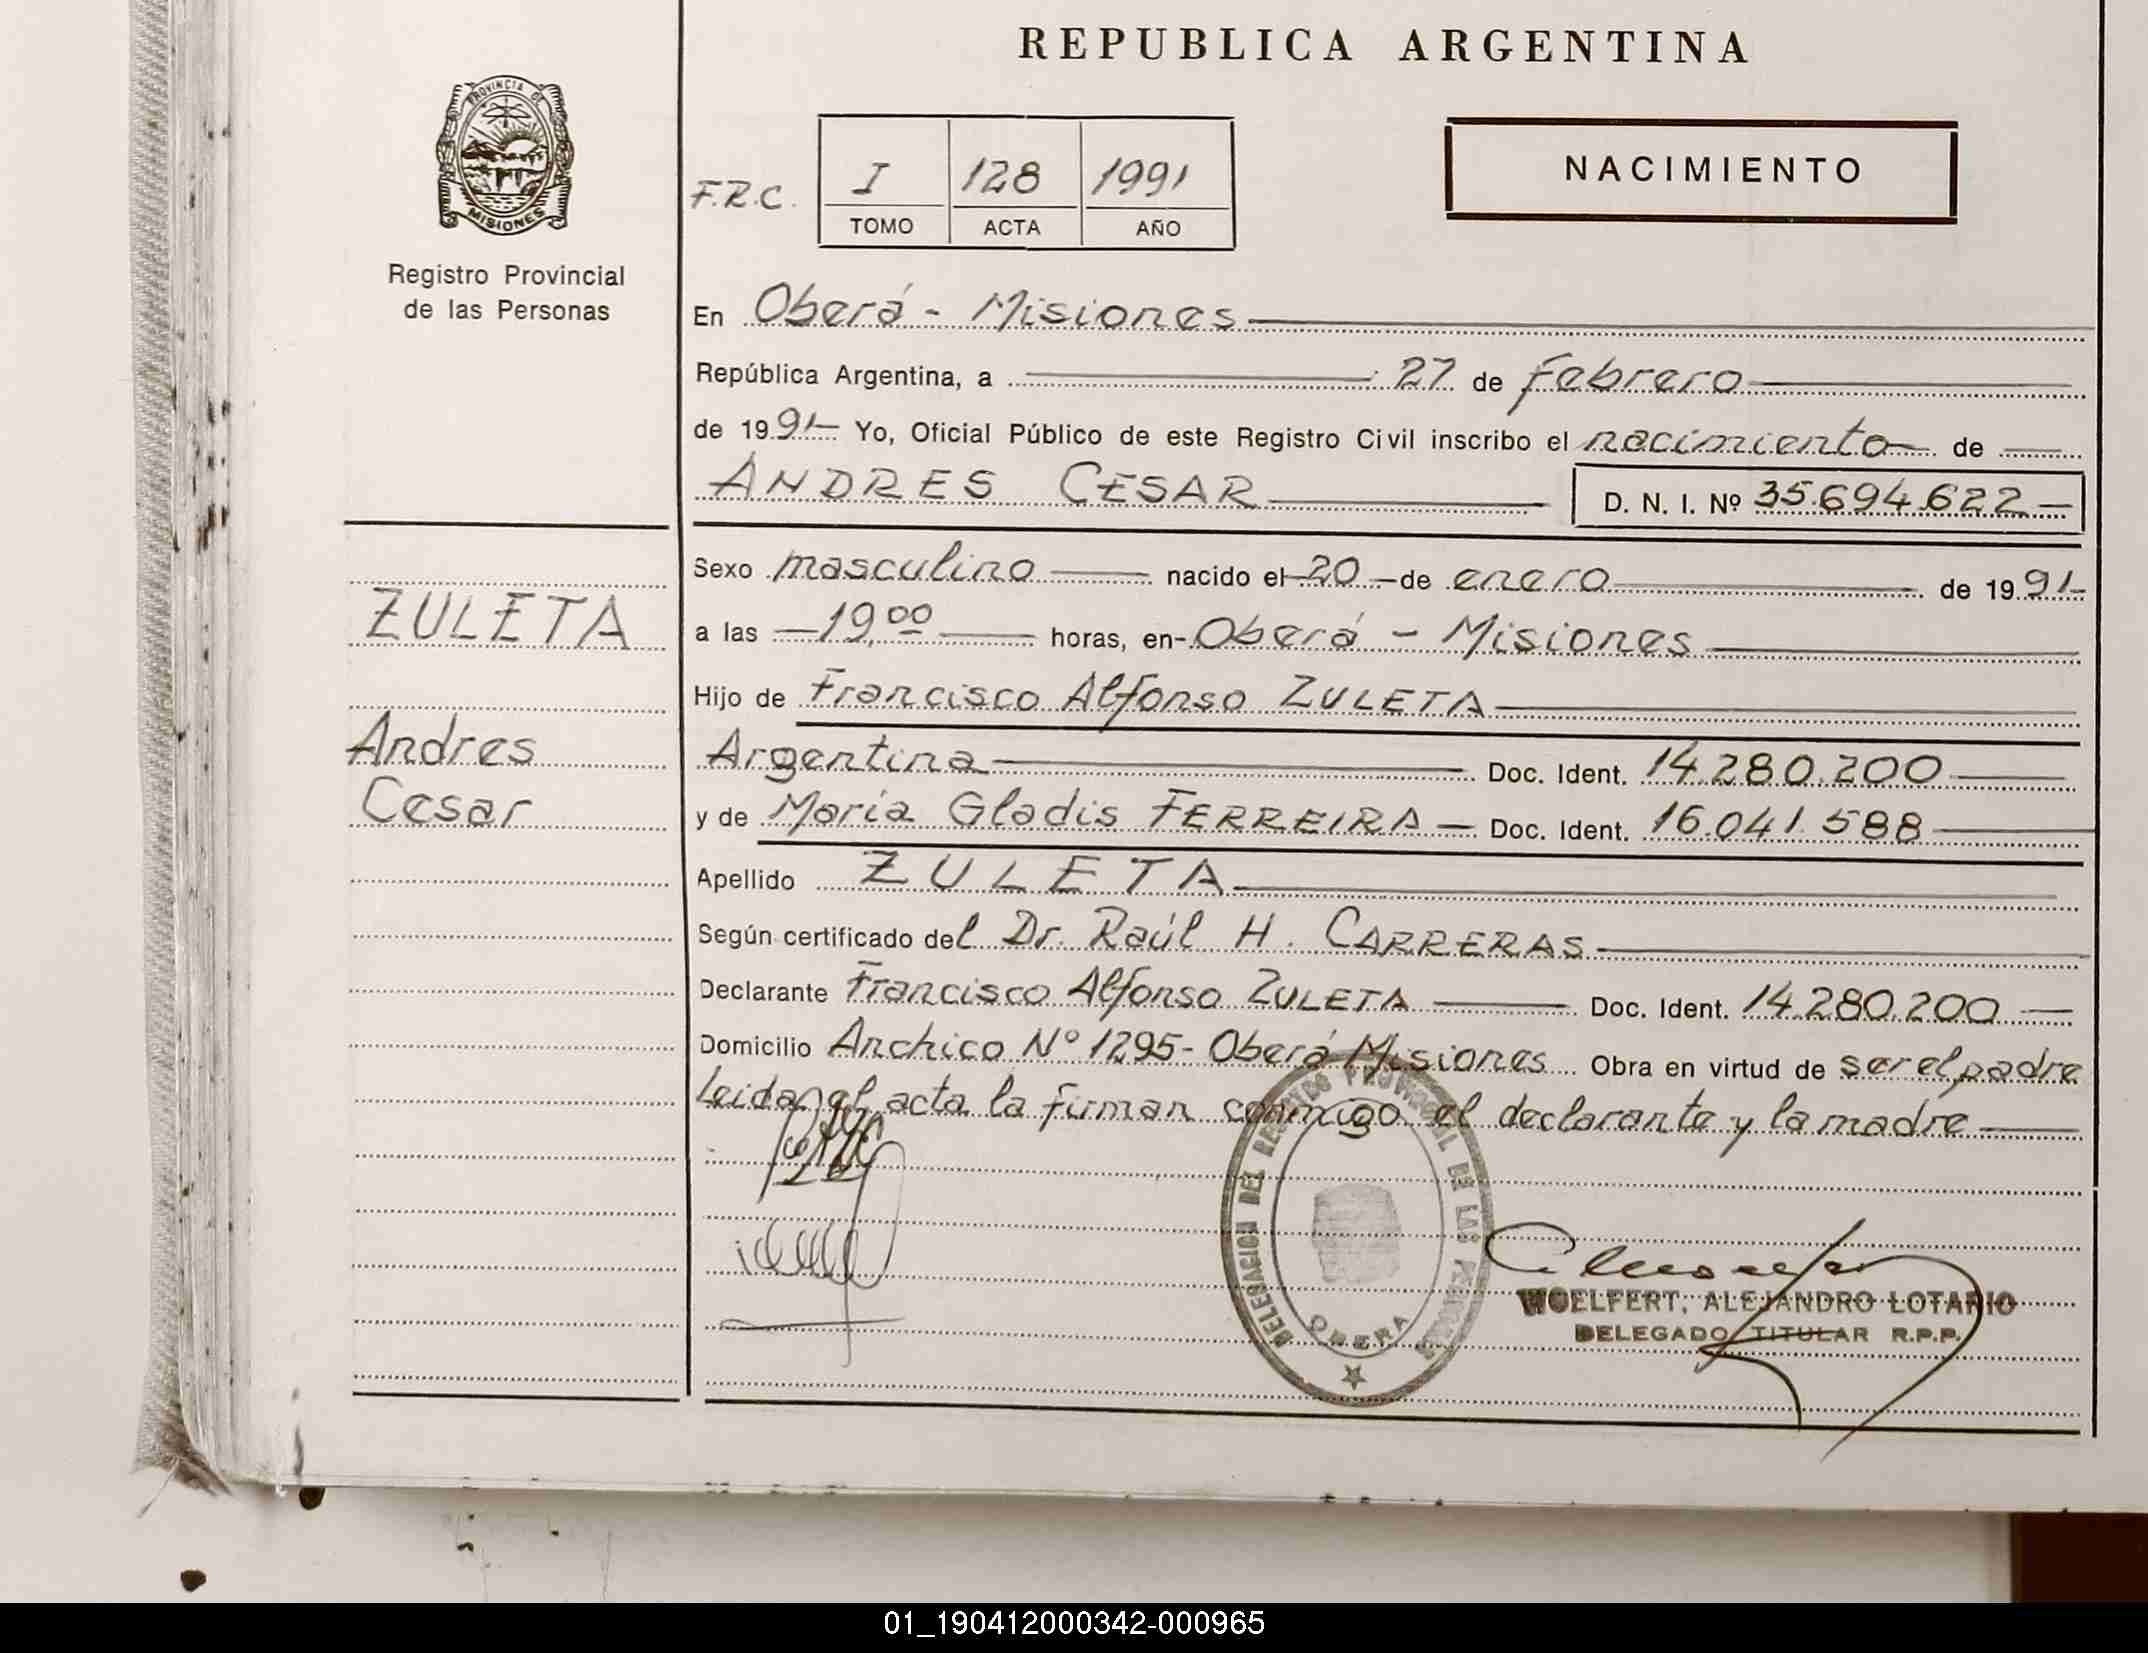 REPUBLICA ARGENTINA
PROVINCIA DE
MISIONES
Registro Provincial
de las Personas
F.R.C.
I 128 1991
TOMO ACTA AÑO
NACIMIENTO
En Oberá - Misiones
República Argentina, a 27 de febrero
de 1991 Yo, Oficial Público de este Registro Civil inscribo el nacimiento de
ANDRES CESAR
D. N. I. Nº 35.694.622
ZULETA
Andres
Cesar
Sexo masculino nacido el 20 de enero de 1991
a las 19,00 horas, en Oberá - Misiones
Hijo de Francisco Alfonso ZULETA
Argentina Doc. Ident. 14.280.200
y de Maria Gladis FERREIRA Doc. Ident. 16.041.588
Apellido ZULETA
Según certificado del Dr. Raúl H. CARRERAS
Declarante Francisco Alfonso ZULETA Doc. Ident. 14.280.200
Domicilio Anchico Nº 1295 - Oberá Misiones Obra en virtud de ser el padre
Leida el acta la firman conmigo el declarante y la madre
DELEGACION DEL REGISTRO PROVINCIAL DE LAS PERSONAS
OBERA
WOELFERT, ALEJANDRO LOTARIO
DELEGADO TITULAR R.P.P.
01_190412000342-000965